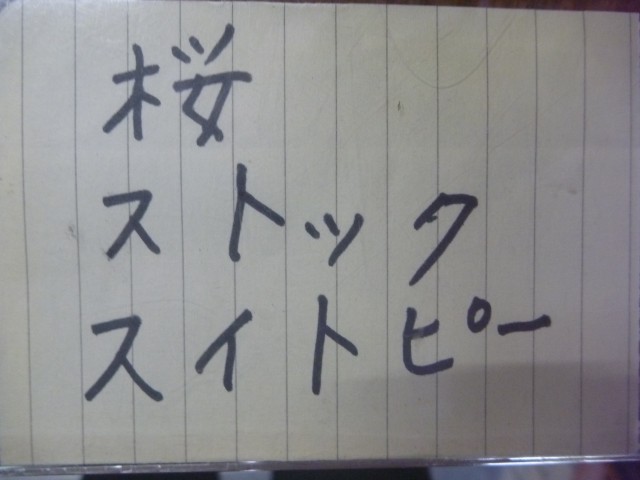 桜
ストック
スイトピー